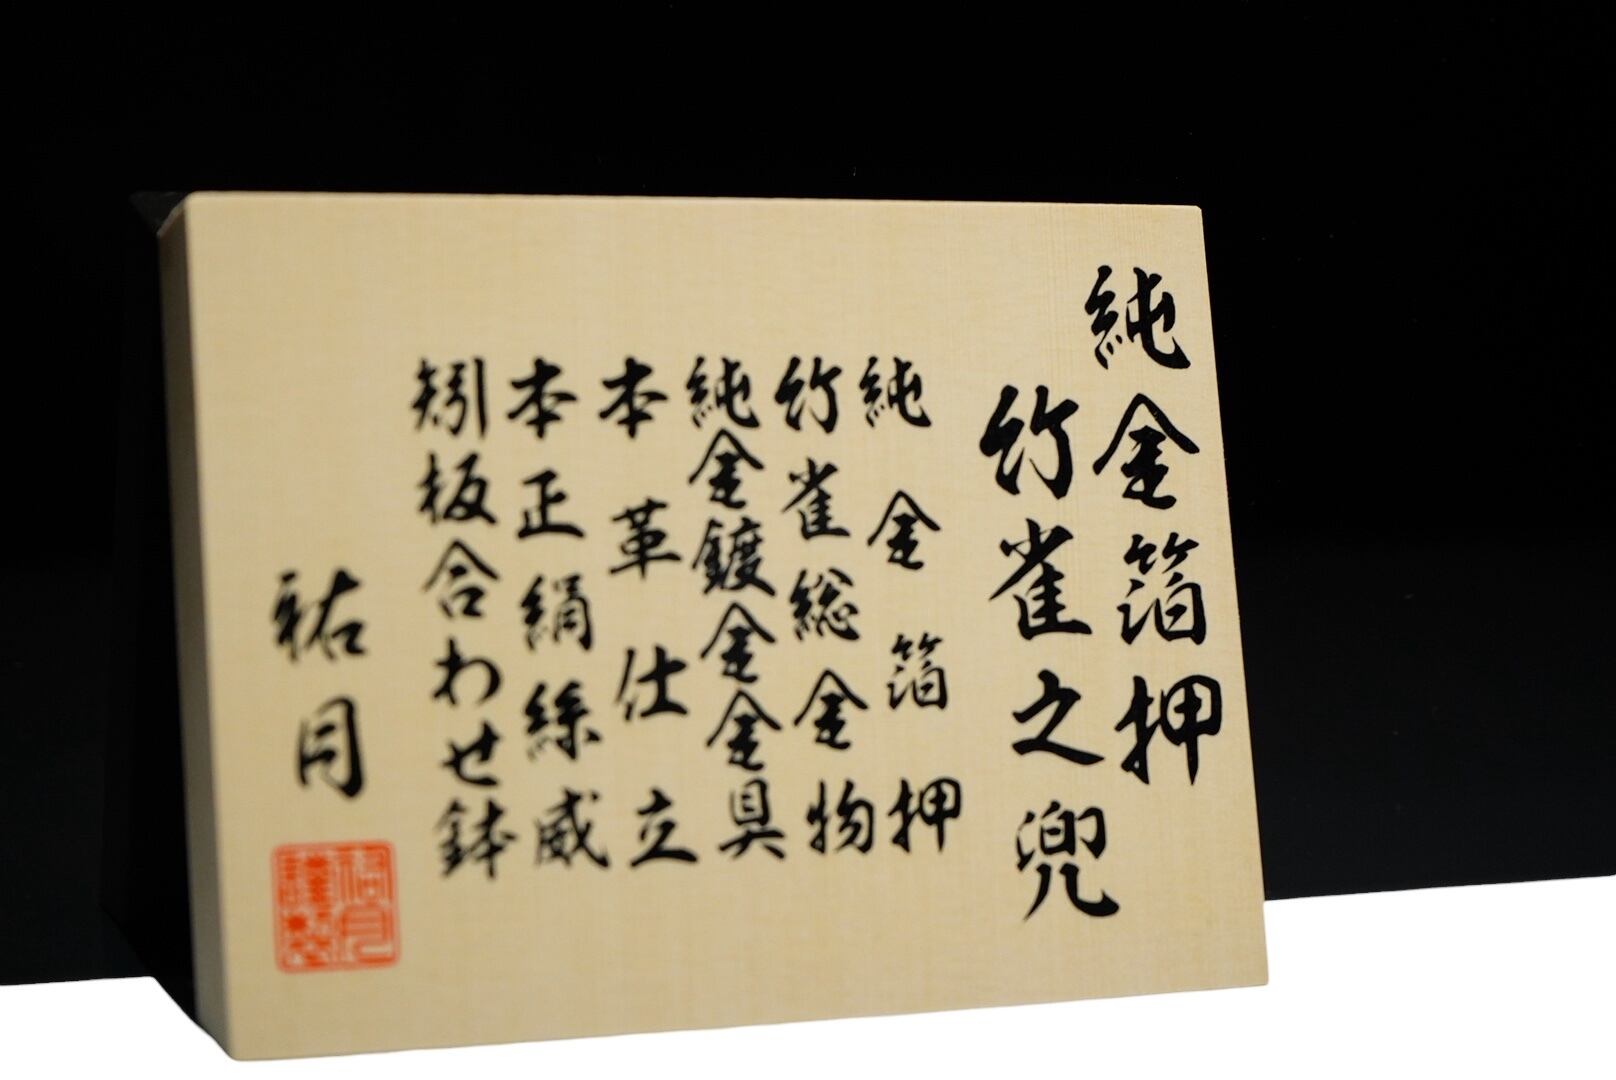 純金箔押
竹雀之兜
純金箔押
竹雀総金物
純金鍍金金具
本革仕立
本正絹絲威
矧板合わせ鉢
祐月
祐月
謹製